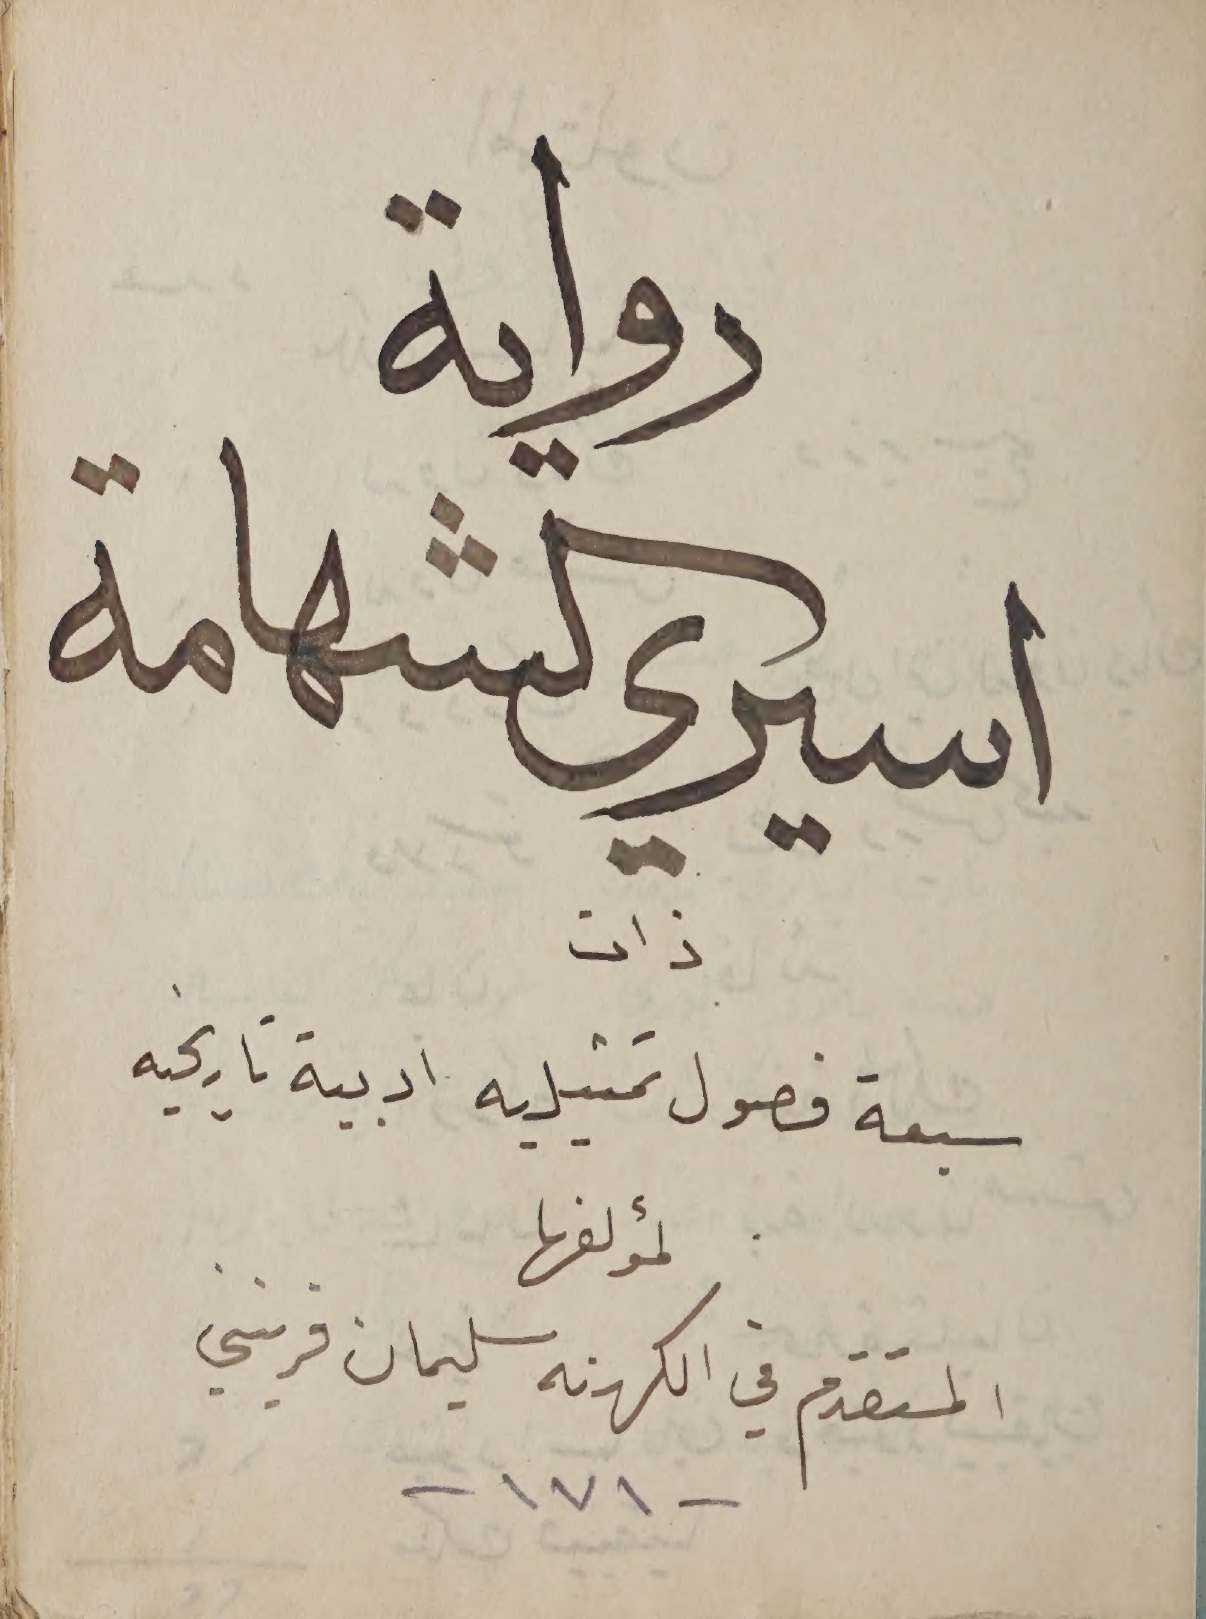 رواية
اسيري الشهامة
ذات
سبعة فصول تمثيليه ادبية تاريخيه
لمؤلفها
المتقدم في الكهنه سليمان فرنيني
- ١٧١ -